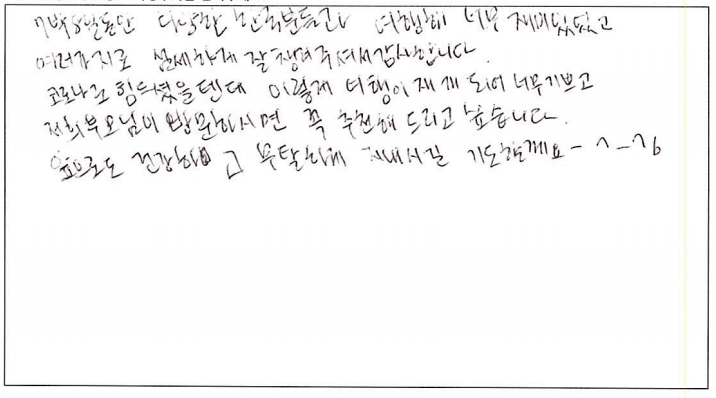 7박8일동안 다양한 한국분들과 여행해 너무 재미있었고
여러가지로 섬세하게 잘 챙겨주셔서 감사합니다.
코로나로 힘드셨을텐데 이렇게 여행이 재개 되어 너무기쁘고
저희부모님이 방문하시면 꼭 추천해 드리고 싶습니다.
앞으로도 건강하고 무탈하게 지내시길 기도할께요~ ^_^